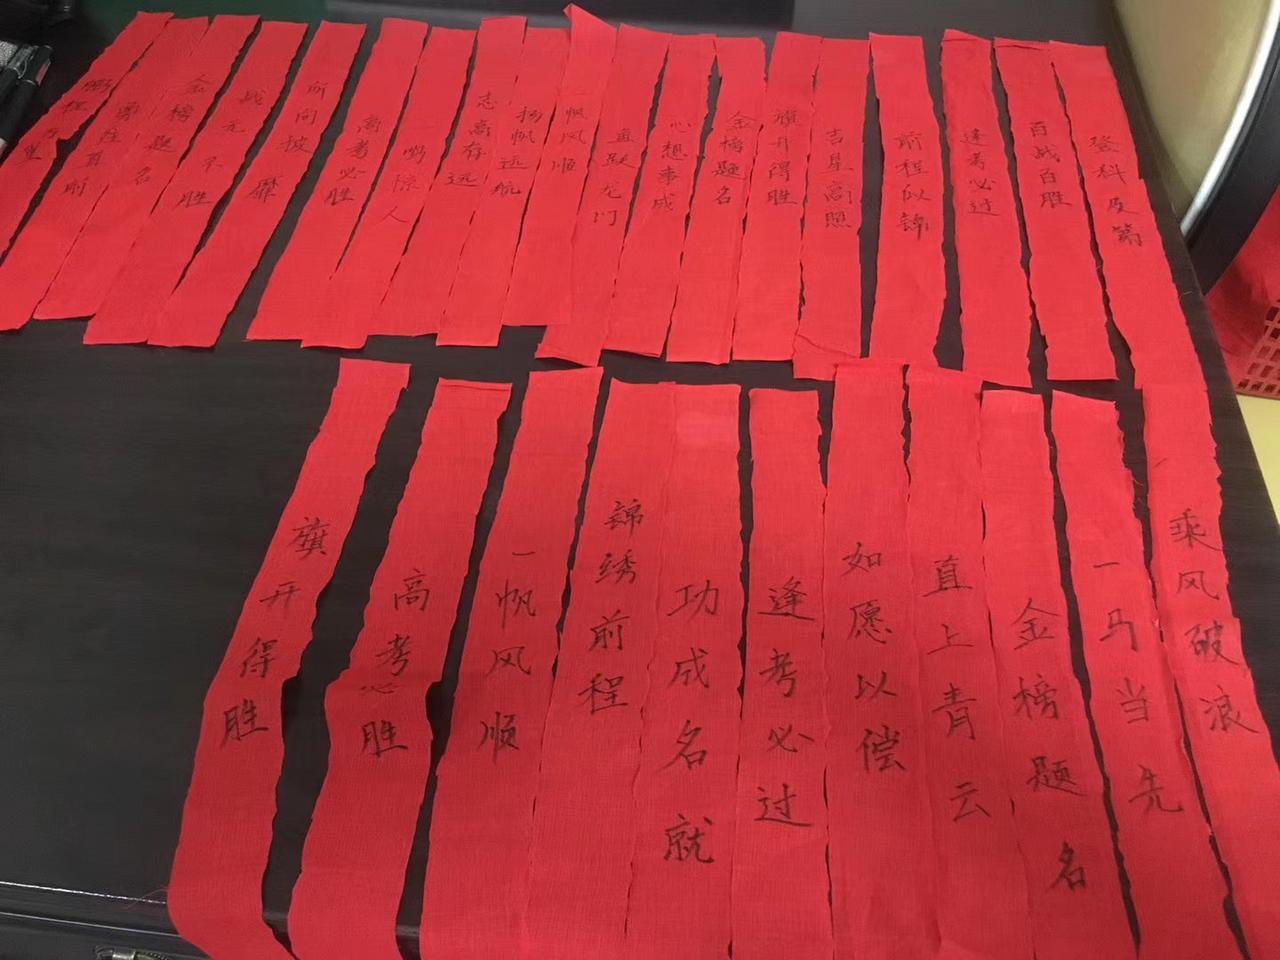 鹏程万里
勇往直前
金榜题名
战无不胜
所向披靡
高考必胜
一鸣惊人
志高存远
扬帆远航
一帆风顺
鱼跃龙门
心想事成
金榜题名
旗开得胜
吉星高照
前程似锦
逢考必过
百战百胜
登科及第
旗开得胜
高考必胜
一帆风顺
锦绣前程
功成名就
逢考必过
如愿以偿
直上青云
金榜题名
一马当先
乘风破浪